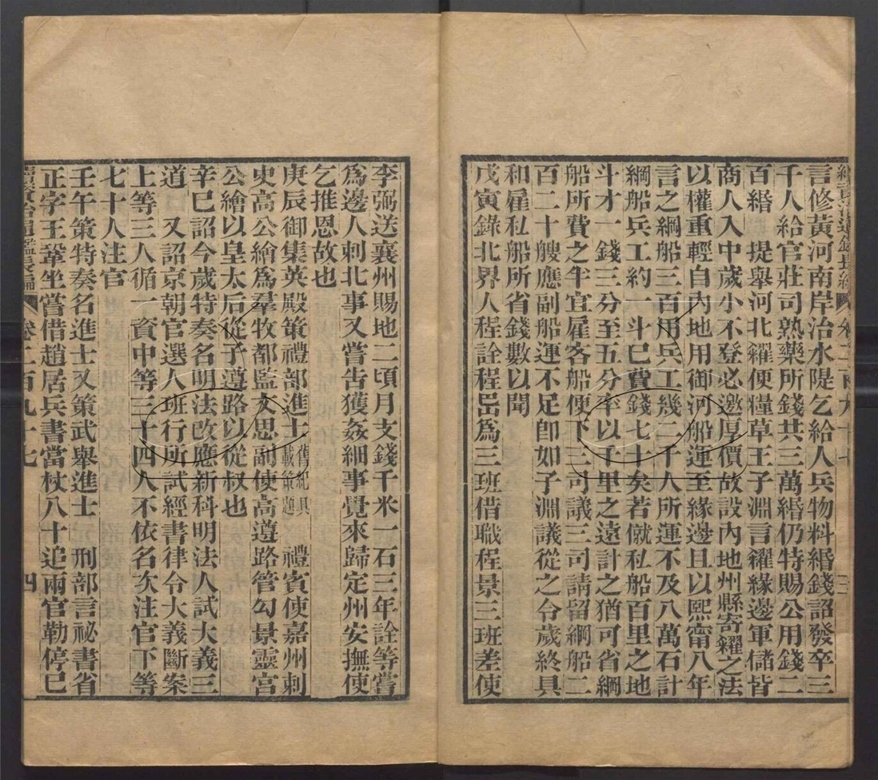 續資治通鑑長編 卷二百九十七 三
言修黃河南岸治水隄乞給人兵物料緡錢詔發卒三
千人給官莊司熟藥所錢共三萬緡仍特賜公用錢二
百緡 提舉河北糴便糧草王子淵言糴緣邊軍儲皆
商人入中歲小不登必邀厚價故設內地州縣寄糴之法
以權重輕自內地用御河船運至緣邊且以熙甯八年
言之綱船三百用兵工幾二千人所運不及八萬石計
綱船兵工約一斗已費錢七十矣若僦私船百里之地
斗才一錢三分至五分率以千里之遠計之猶可省綱
船所費之半宜雇客船便下三司議三司請留綱船二
百二十艘應副船運不足卽如子淵議從之令歲終具
和雇私船所省錢數以聞
戊寅錄北界人程詮程岊為三班借職程景三班差使
李弼送襄州賜地二頃月支錢千米一石三年詮等嘗
為邊人刺北事又嘗告獲姦細事覺來歸定州安撫使
乞推恩故也
庚辰御集英殿策禮部進士舊紀具載策題 禮賓使嘉州刺
史高公繪為羣牧都監文思副使高遵路管勾景靈宮
公繪以皇太后從子遵路以從叔也
辛巳詔今歲特奏名明法改應新科明法人試大義三
道 又詔京朝官選人班行所試經書律令大義斷案
上等三人循一資中等三十四人不依名次注官下等
七十人注官
壬午策特奏名進士又策武舉進士 刑部言祕書省
正字王鞏坐嘗借趙居兵書當杖八十追兩官勒停已
續資治通鑑長編 卷二百九十七 四